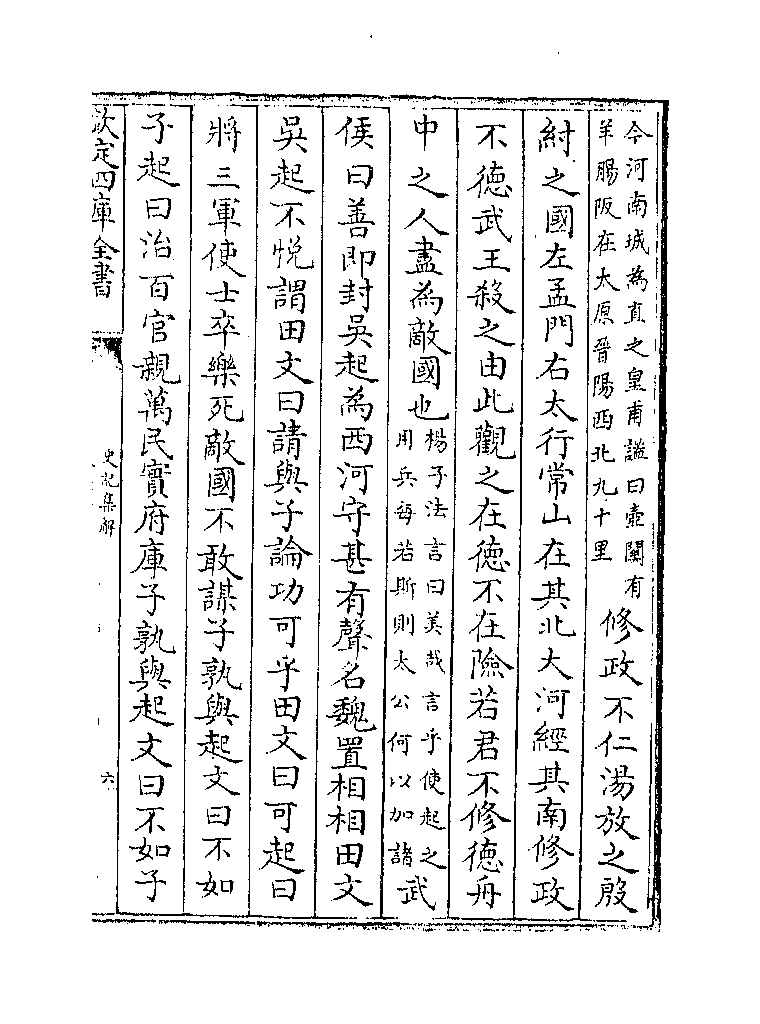 今河南城為直之皇甫謐曰壺關有
羊腸阪在太原晉陽西北九十里
修政不仁湯放之殷
紂之國左孟門右太行常山在其北大河經其南修政
不德武王殺之由此觀之在德不在險若君不修德舟
中之人盡為敵國也
楊子法言曰美哉言乎使起之
用兵每若斯則太公何以加諸
武
侯曰善即封吳起為西河守甚有聲名魏置相相田文
吳起不悅謂田文曰請與子論功可乎田文曰可起曰
將三軍使士卒樂死敵國不敢謀子孰與起文曰不如
子起曰治百官親萬民實府庫子孰與起文曰不如子
欽定四庫全書
史記集解
六